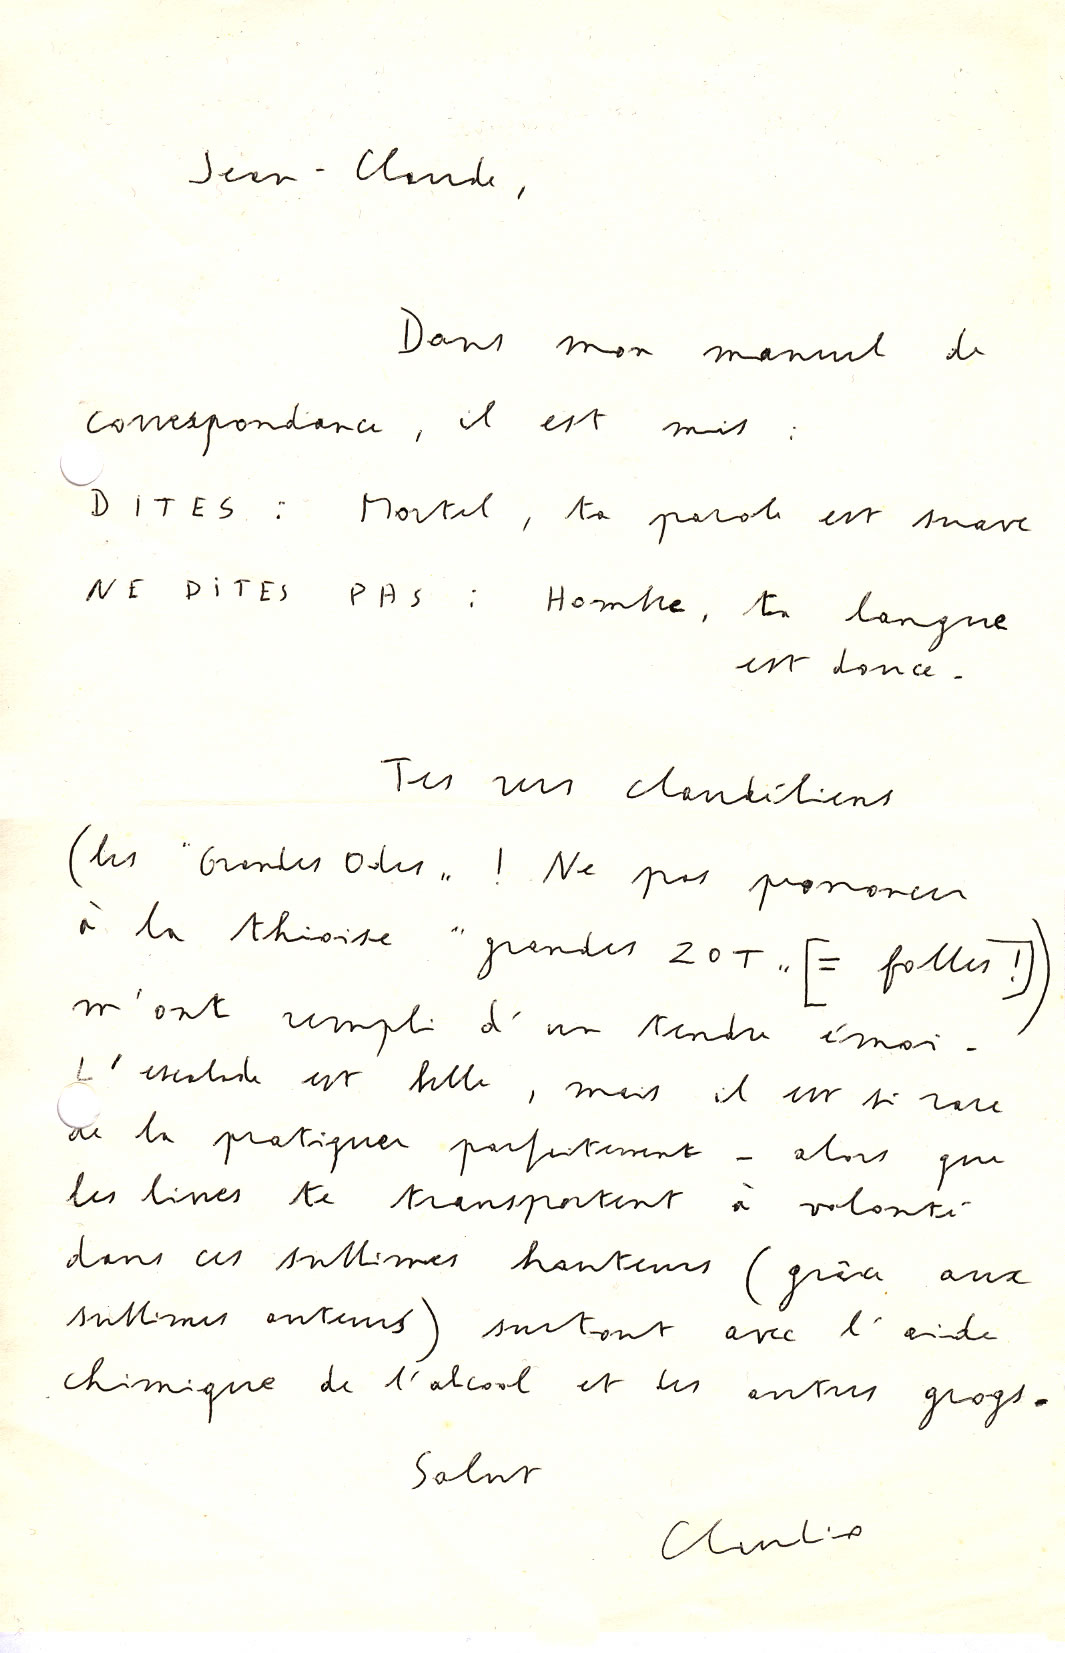 Jean-Claude,
Dans mon manuel de
correspondance, il est mis :
DITES : Mortel, ta parole est suave
NE DITES PAS : Homme, ta langue
est douce.
Tes vers claudéliens
(les "Grandes Odes" ! Ne pas prononcer
à la thioise "grandes ZOT" [= folles !])
m'ont rempli d'un tendre émoi.
L'escalade est belle, mais il est si rare
de la pratiquer parfaitement - alors que
les livres te transportent à volonté
dans ces sublimes hauteurs (grâce aux
sublimes auteurs) surtout avec l'aide
chimique de l'alcool et des autres grogs.
Salut